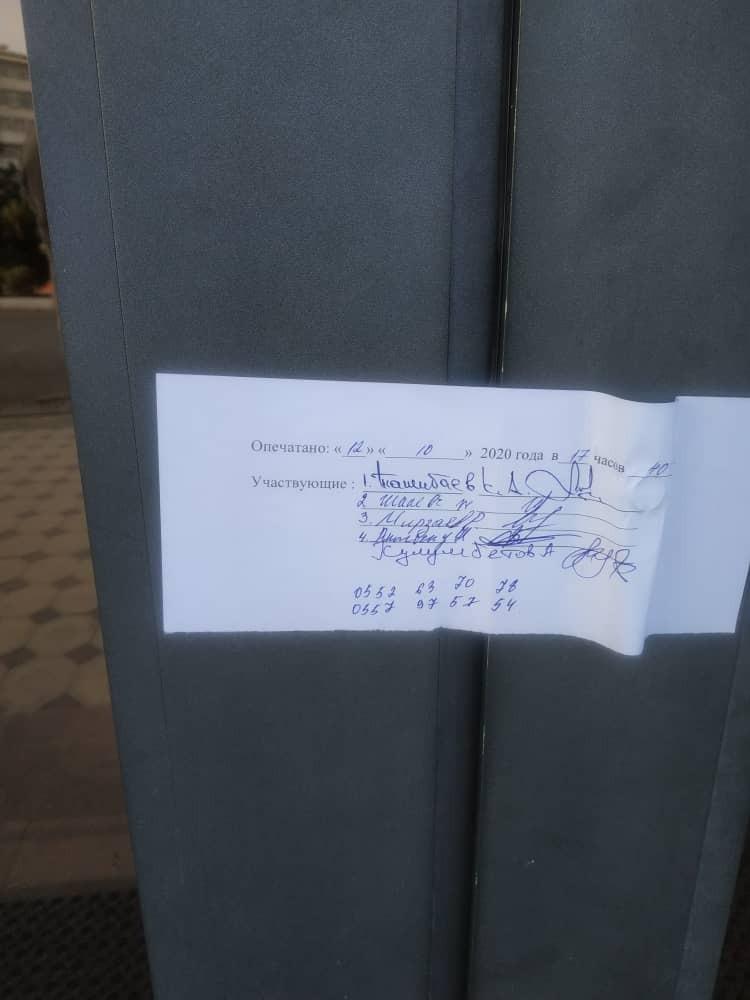 Опечатано: « 12 » « 10 » 2020 года в 17 часов 40
Участвующие : 1. Ташибаев К. А.
2 Шаев Ж
3. Мирзаев Р.
4.
Кулумбетов А
0552 23 70 78
0557 97 57 54